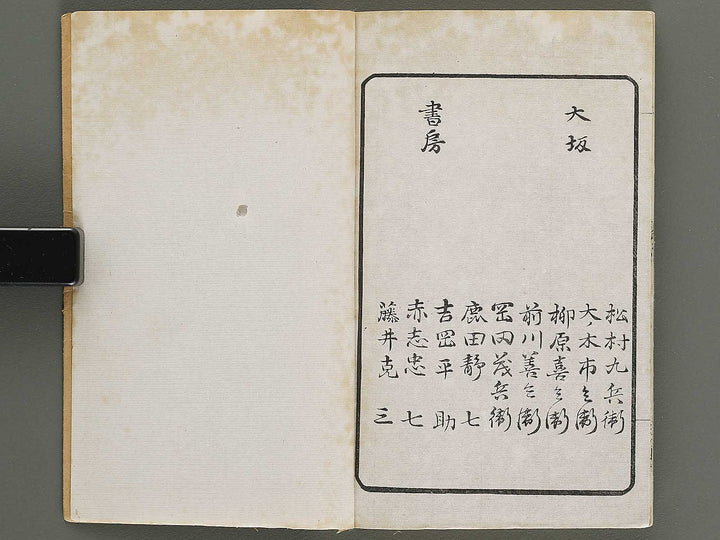 大坂
書房
松村九兵衛
大木市兵衛
柳原喜兵衛
前川善兵衛
岡田茂兵衛
鹿田静七
吉岡平助
赤志忠七
藤井克三